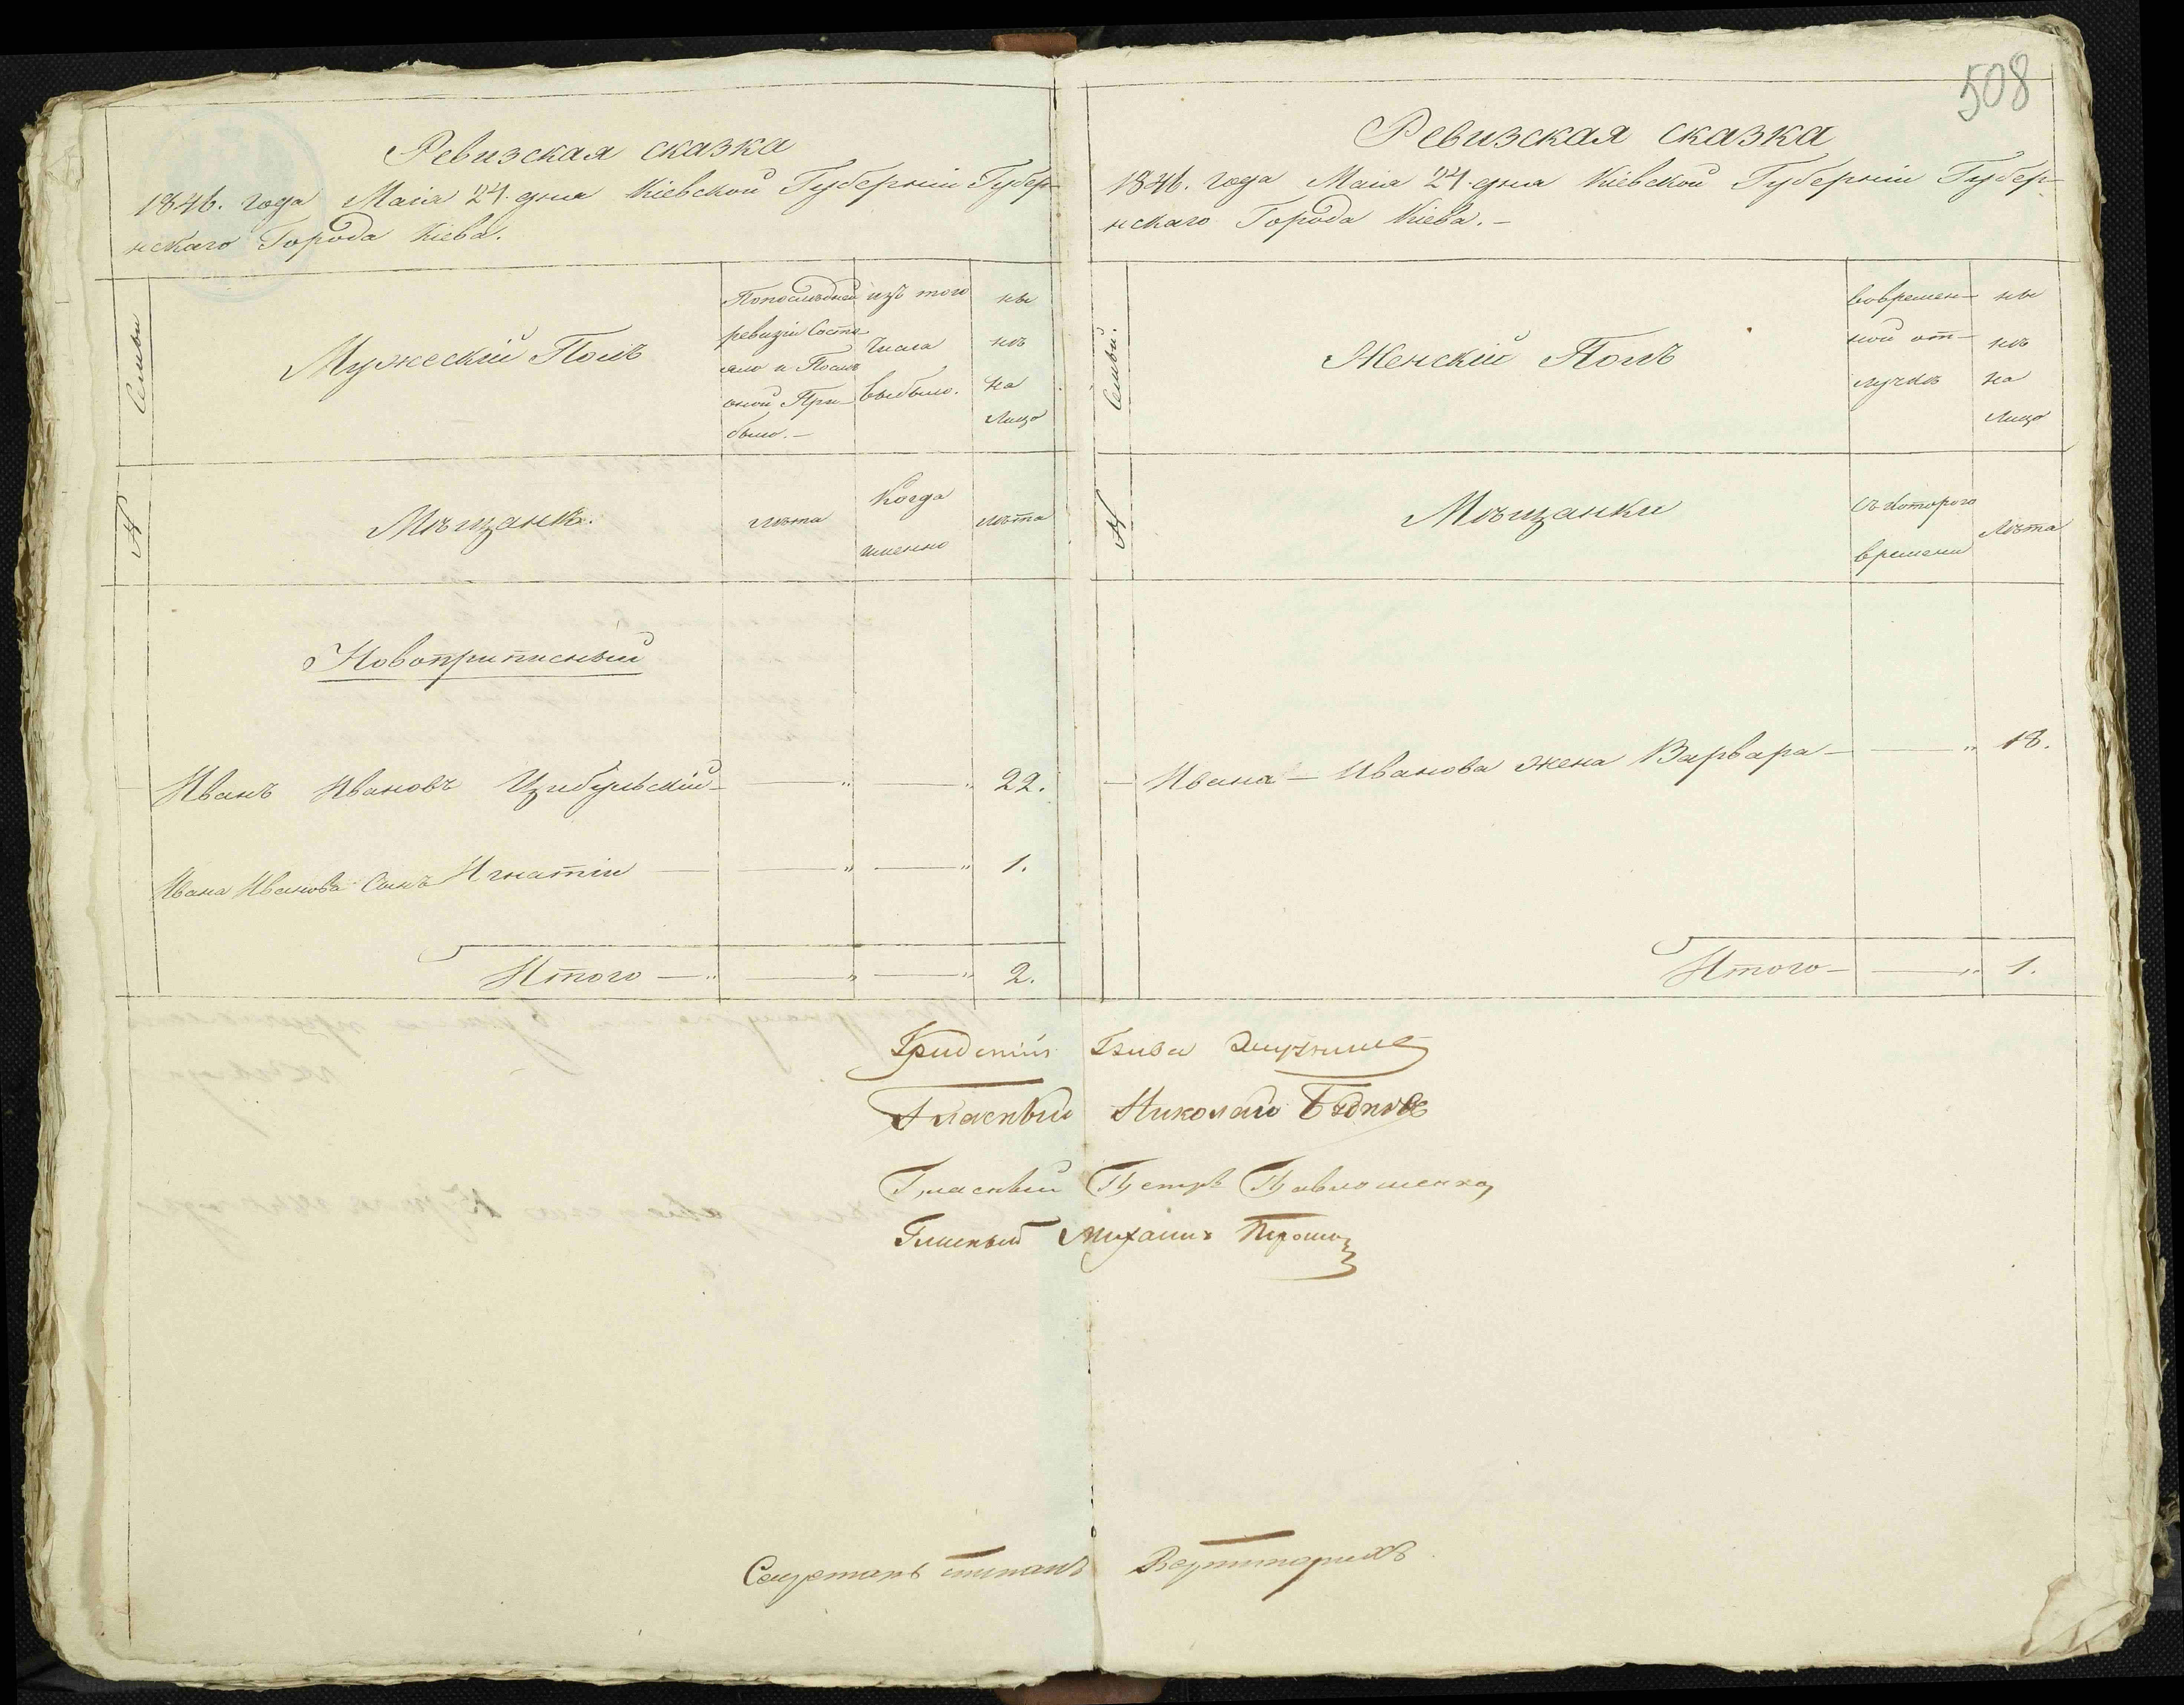 508
Ревизская сказка
1846. года Маія 24 дня Кіевской Губерніи Губер-
нскаго Города Кіева.
Семьи
Мужескій Полъ
Попослѣдней
ревизіи Состо
яло и После
оной При-
было.-
изъ того
Числа
выбыло.
ны
нѣ
на
Лицо
№
Мѣщанъ.
лѣта
Когда
именно
лѣта
Новоприписный
Иванъ Ивановъ Цибульскій — " — " 22.
Ивана Иванова Сынъ Игнатій — " — " 1.
Итого — " — " — " 2.
Ревизская сказка
1846. года Маія 24 дня Кіевской Губерніи Губер-
нскаго Города Кіева.-
Семьи.
Женскій Полъ
вовремен-
ной от-
лучкѣ
ны
нѣ
на
Лицо
№
Мѣщанки
Съ Котораго
времени
Лѣта
Ивана - Иванова жена Варвара — " 18.
Итого — " 1.
Гласный Николай
Гласный Петръ Павлошенко
Гласный Михаилъ
Секретарь